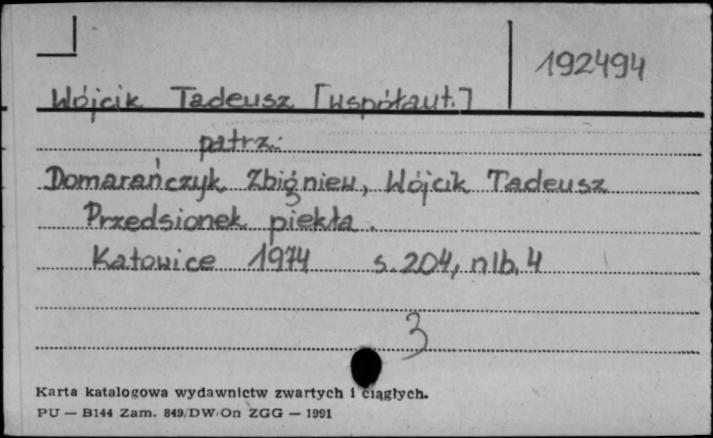 192494
Wójcik Tadeusz [współaut.]
patrz:
Domarańczyk Zbigniew, Wójcik Tadeusz
Przedsionek piekła.
Katowice 1974 s. 204, nlb. 4
3
Karta katalogowa wydawnictw zwartych i ciągłych.
PU — B144 Zam. 849/DW/On ZGG — 1991